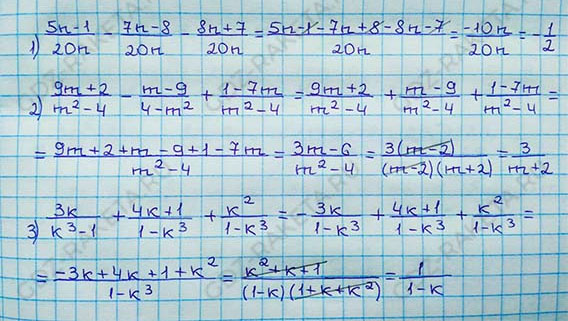 1) (5n-1)/20n - (7n-8)/20n - (8n+7)/20n = (5n-1-7n+8-8n-7)/20n = -10n/20n = -1/2
2) (9m+2)/(m²-4) - (m-9)/(4-m²) + (1-7m)/(m²-4) = (9m+2)/(m²-4) + (m-9)/(m²-4) + (1-7m)/(m²-4) =
= (9m+2+m-9+1-7m)/(m²-4) = (3m-6)/(m²-4) = 3(m-2)/(m-2)(m+2) = 3/(m+2)
3) 3к/(к³-1) + (4к+1)/(1-к³) + к²/(1-к³) = - 3к/(1-к³) + (4к+1)/(1-к³) + к²/(1-к³) =
= (-3к+4к+1+к²)/(1-к³) = (к²+к+1)/(1-к)(1+к+к²) = 1/(1-к)